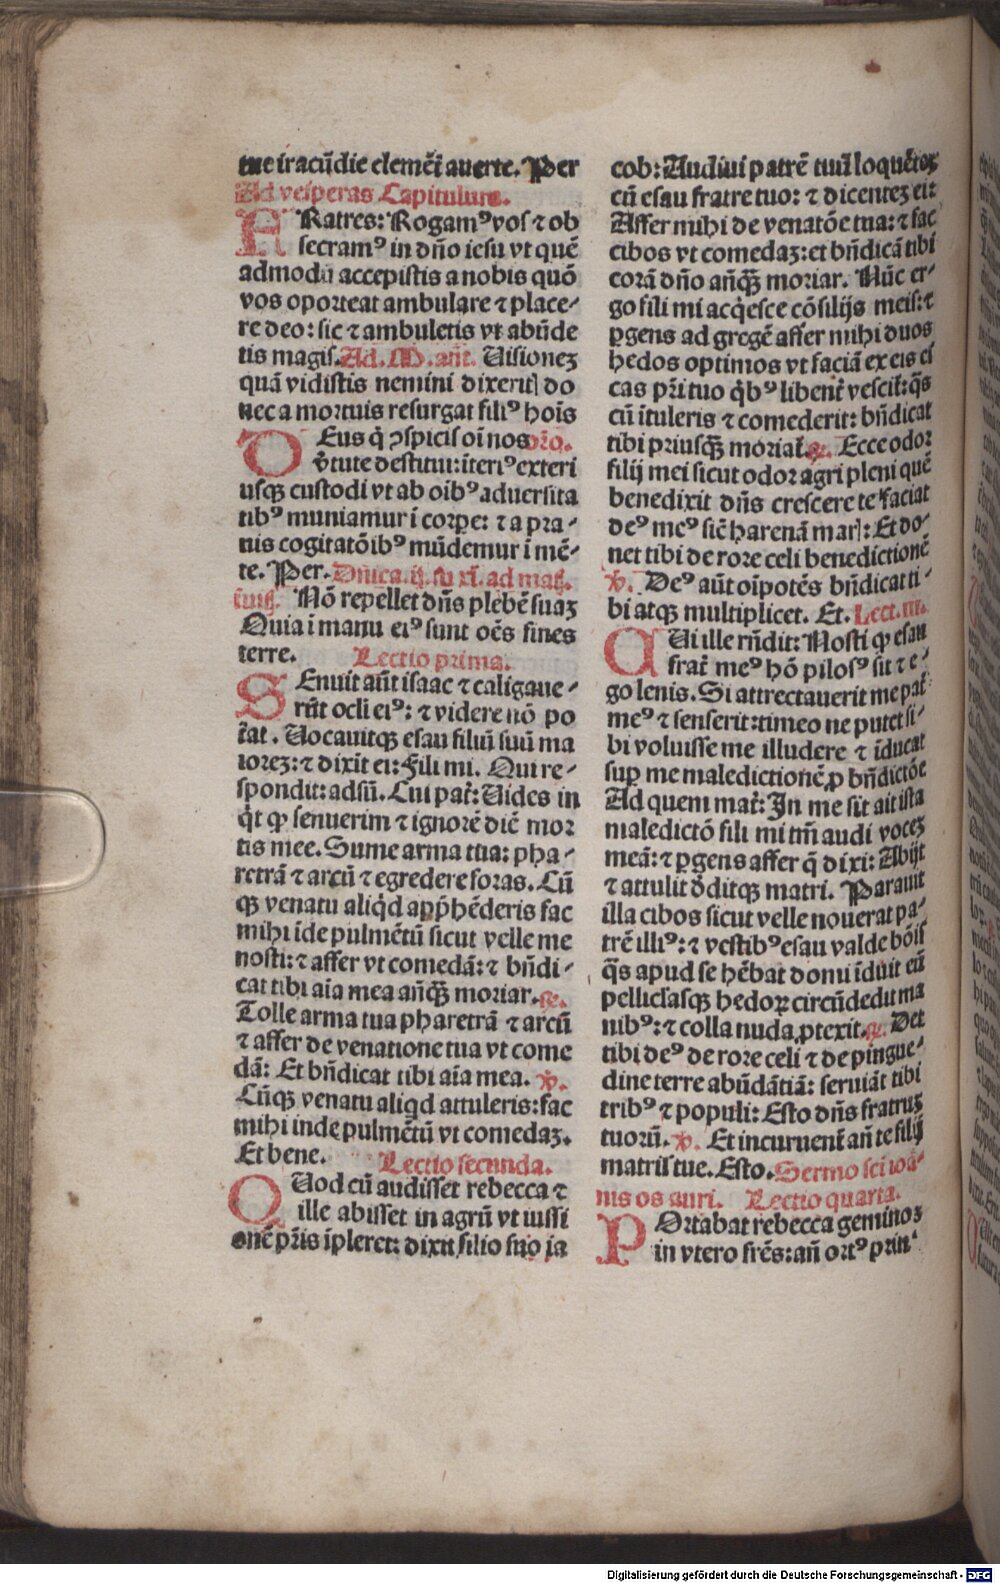 tue iracūdie clemēt̄ auerte. Per
Ad vesperas Capitulum.
FRatres: Rogamꝰ vos ⁊ ob
secramꝰ in dn̄o iesu vt quē
admodū accepistis a nobis quō
vos oporteat ambulare ⁊ place⸗
re deo: sic ⁊ ambuletis vt abūde
tis magis. Ad. M. an̄t. Uisionez
quā vidistis nemini dixerit] do
nec a mortuis resurgat filiꝰ hoīs
DEus q̇ ↄspicis oī nos oīo.
v̄tute destitui: īteriꝰ exteri
usqꝫ custodi vt ab oībꝰ aduersita
tibꝰ muniamur ī corpe: ⁊ a pra⸗
uis cogitatōibꝰ mūdemur ī mē⸗
te. Per. Dn̄ica. ij. in xl. ad mat̄.
īuit̄. Nō repellet dn̄s plebē suaz
Quia ī manu eiꝰ sunt oēs fines
terre. Lectio prima.
SEnuit aūt isaac ⁊ caligaue⸗
rūt ocli eiꝰ: ⁊ videre nō po
t̄at. Uocauitqꝫ esau filiū suū ma
iorez: ⁊ dixit ei: Fili mi. Qui re⸗
spondit: adsū. Cui pat̄: Uides in
q̇t ꝙ senuerim ⁊ ignorē diē mor
tis mee. Sume arma tua: pha⸗
retrā ⁊ arcū ⁊ egredere foras. Cū
qꝫ venatu aliq̇d app̄hēderis fac
mihi īde pulmētū sicut velle me
nosti: ⁊ affer vt comedā: ⁊ bn̄di⸗
cat tibi aīa mea an̄qꝫ̄ moriar. ℞.
Tolle arma tua pharetrā ⁊ arcū
⁊ affer de venatione tua vt come
dā: Et bn̄dicat tibi aīa mea. ℣.
Cūqꝫ venatu aliqd attuleris: fac
mihi inde pulmētū vt comedaz.
Et bene. Lectio secunda.
QUod cū audisset rebecca ⁊
ille abisset in agrū vt iussi
onē pr̄is īpleret: dixit filio suo ia
cob: Audiui patrē tuū loquētez
cū esau fratre tuo: ⁊ dicentez ei:
Affer mihi de venatōe tua: ⁊ fac
cibos vt comedaz: et bn̄dicā tibi
corā dn̄o an̄qꝫ̄ moriar. Nūc er⸗
go fili mi acq̇esce cōsilijs meis: ⁊
ꝑgens ad gregē affer mihi duos
hedos optimos vt faciā ex eis es
cas pr̄i tuo q̇bꝰ libent̄ vescit̄: q̄s
cū ītuleris ⁊ comederit: bn̄dicat
tibi priusqꝫ̄ moriat̄. ℞. Ecce odor
filij mei sicut odor agri pleni quē
benedixit dn̄s crescere te faciat
deꝰ meꝰ sic̄ harenā mar]: Et do⸗
net tibi de rore celi benedictionē
℣. Deꝰ aūt oīpotēs bn̄dicat ti⸗
bi atqꝫ multiplicet. Et. Lect. iii.
CUi ille rn̄dit: Nosti ꝙ esau
frat̄ meꝰ hō pilosꝰ sit ⁊ e⸗
go lenis. Si attrectauerit me pat̄
meꝰ ⁊ senserit: timeo ne putet si⸗
bi voluisse me illudere ⁊ īducat
sup me maledictionē ꝓ bn̄dictōe
Ad quem mat̄: In me sit ait ista
maledictō fili mi tm̄ audi vocez
meā: ⁊ ꝑgens affer q̄ dixi: Abijt
⁊ attulit d̄ditqꝫ matri. Parauit
illa cibos sicut velle nouerat pa⸗
trē illiꝰ: ⁊ vestibꝰ esau valde bōis
q̄s apud se hēbat domi īduit eū
pelliclasqꝫ hedoꝝ circūdedit ma
nibꝰ: ⁊ colla nuda ꝓtexit. ℞. Det
tibi deꝰ de rore celi ⁊ de pingue⸗
dine terre abūdātiā: seruiāt tibi
tribꝰ ⁊ populi: Esto dn̄s fratruz
tuorū. ℣. Et incuruent̄ an̄ te filij
matris tue. Esto. Sermo sci ioā⸗
nis os auri. Lectio quarta.
POrtabat rebecca geminos
in vtero fr̄es: an̄ ortꝰ prin⸗
Digitalisierung gefördert durch die Deutsche Forschungsgemeinschaft - DFG